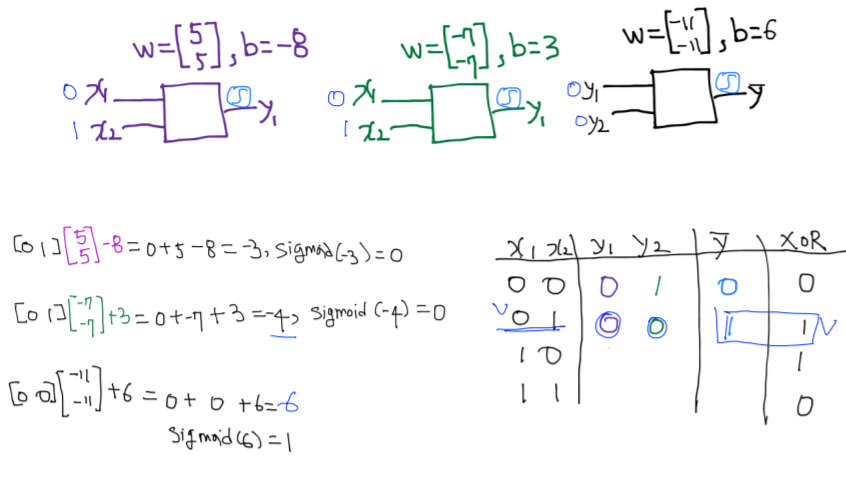 w=[5 5], b=-8
w=[-7 -7], b=3
w=[-11 -11], b=6
0 x1
1 x2
S
y1
0 x1
1 x2
S
y1
0 y1
0 y2
S
ȳ
[0 1][5 5]-8=0+5-8=-3, sigmoid(-3)=0
[0 1][-7 -7]+3=0+-7+3=-4, sigmoid(-4)=0
[0 0][-11 -11]+6=0+0+6=-6
sigmoid(6)=1
x1 x2 y1 y2 ȳ XOR
0 0 0 1 0 0
V 0 1 0 0 1 1 V
1 0 1
1 1 0